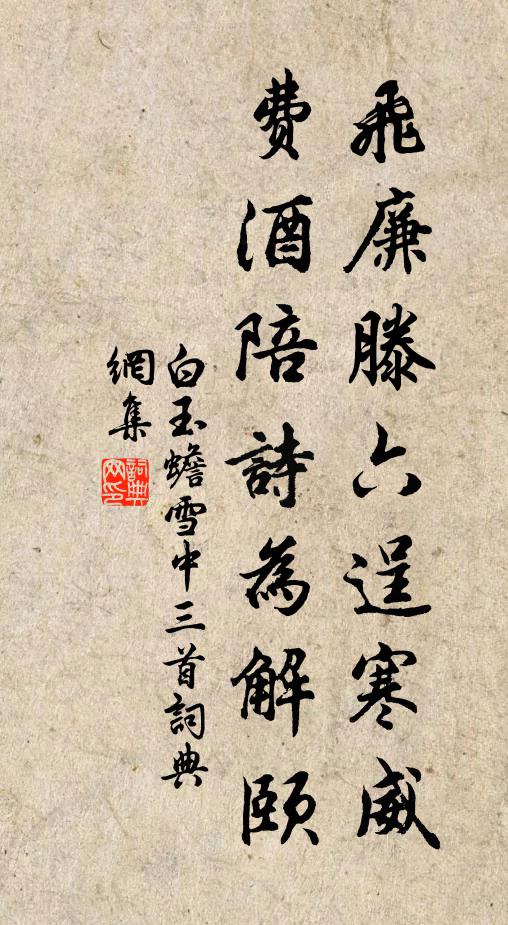 飛廉滕六逞寒威
費酒陪詩為解頤
白玉蟾雪中三首詞典
網集
詞典网印